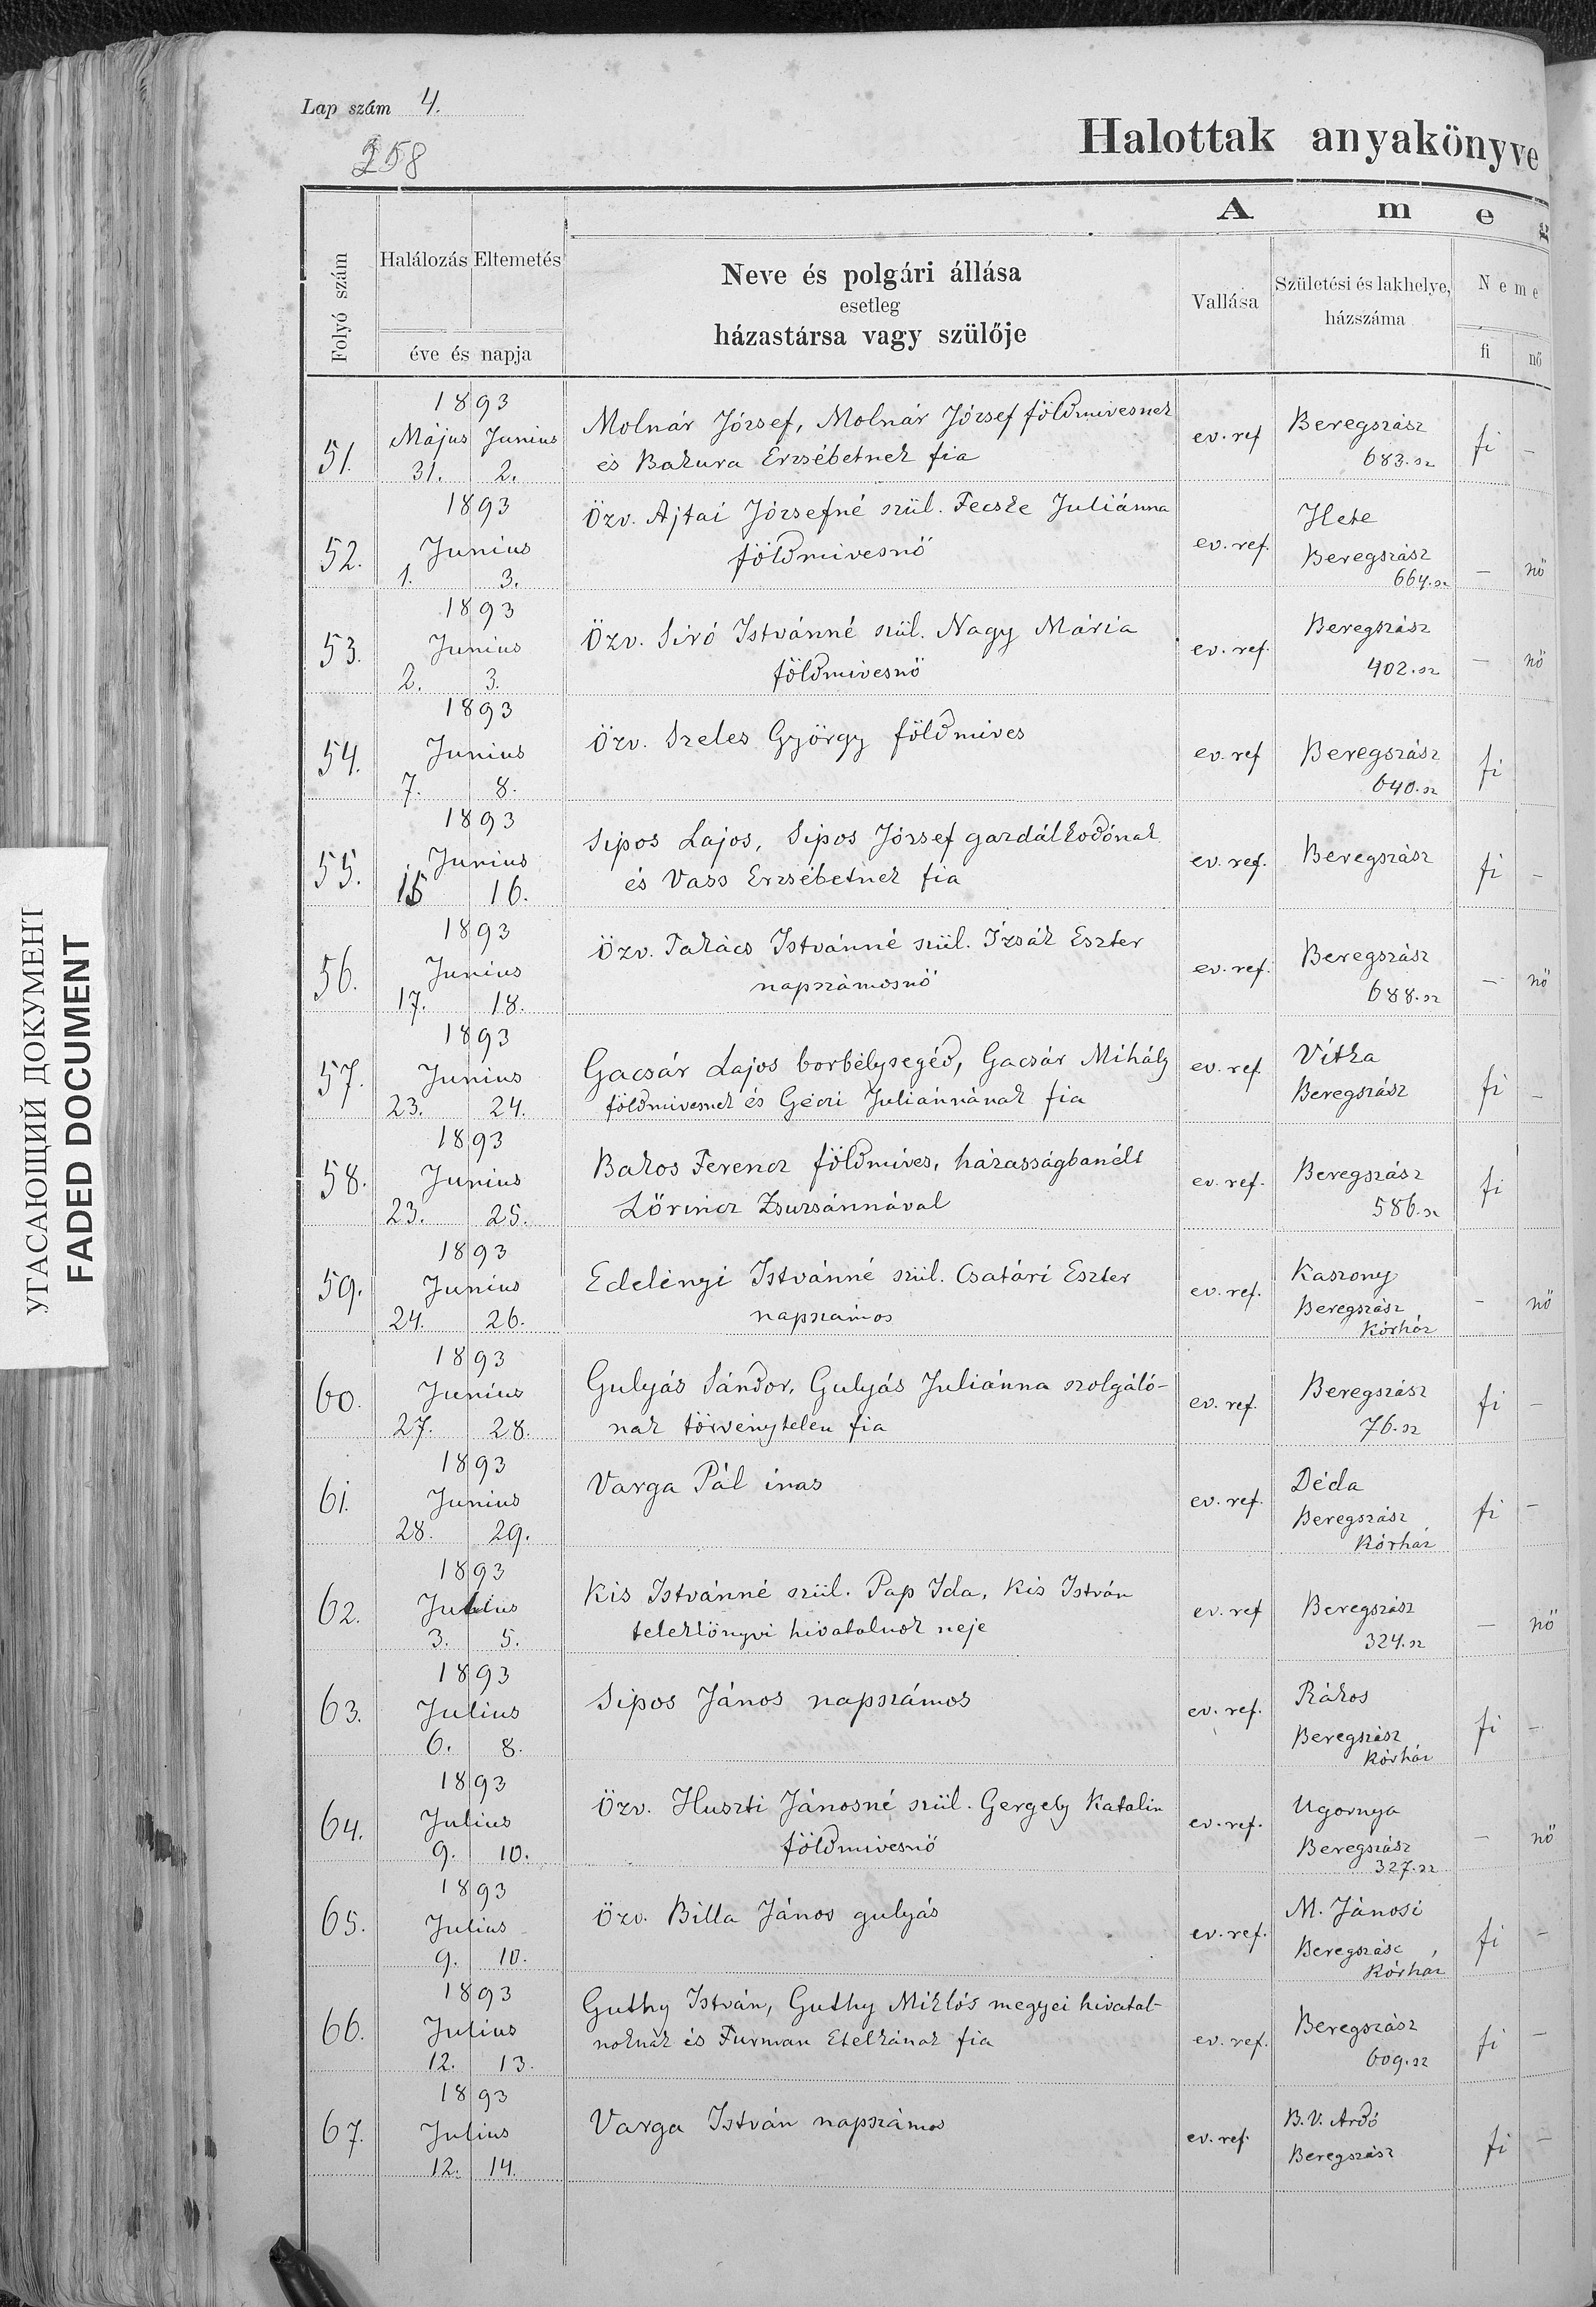 Lap szám 4.
258
Halottak anyakönyve
A m e g
Folyó szám
Halálozás Eltemetés
éve és napja
Neve és polgári állása
esetleg
házastársa vagy szülője
Vallása
Születési és lakhelye,
házszáma
Neme
fi nő
УГАСАЮЩИЙ ДОКУМЕНТ
FADED DOCUMENT
1893
51. Május Junius Molnár József, Molnár József földmivesnek ev. ref Beregszász fi –
31. 2. és Bakura Erzsébetnek fia 683. sz
1893
52. Junius Özv. Ajtai Józsefné szül. Fecske Juliánna ev. ref. Hete
1. 3. földmivesnő Beregszász – nő
664. sz
1893
53. Junius Özv. Siró Istvánné szül. Nagy Mária ev. ref. Beregszász – nő
2. 3. földmivesnő 402. sz
1893
54. Junius Özv. Szeles György földmives ev. ref Beregszász fi
7. 8. 640. sz
1893
55. Junius Sipos Lajos, Sipos József gazdálkodónak ev. ref. Beregszász fi –
15 16. és Vass Erzsébetnek fia
1893
56. Junius Özv. Takács Istvánné szül. Izsák Eszter ev. ref. Beregszász – nő
17. 18. napszámosnő 688. sz
1893
57. Junius Gacsár Lajos borbélysegéd, Gacsár Mihály ev. ref. Vitka fi –
23. 24. földmivesnek és Géczi Juliánnának fia Beregszász
1893
58. Junius Bakos Ferencz földmives, házasságbanélt ev. ref. Beregszász fi
23. 25. Lőrincz Zsuzsánnával 586. sz
1893
59. Junius Edelényi Istvánné szül. Csatári Eszter ev. ref. Kaszony – nő
24. 26. napszámos Beregszász
Kórház
1893
60. Junius Gulyás Sándor, Gulyás Juliánna szolgáló- ev. ref. Beregszász fi –
27. 28. nak törvénytelen fia 76. sz
1893
61. Junius Varga Pál inas ev. ref. Déda fi –
28. 29. Beregszász
Kórház
1893
62. Julius Kis Istvánné szül. Pap Ida, Kis István ev. ref Beregszász – nő
3. 5. telekkönyvi hivatalnok neje 324. sz
1893
63. Julius Sipos János napszámos ev. ref. Rákos fi –
6. 8. Beregszász
Kórház
1893
64. Julius Özv. Huszti Jánosné szül. Gergely Katalin ev. ref. Ugornya – nő
9. 10. földmivesnő Beregszász
327. sz
1893
65. Julius Özv. Billa János gulyás ev. ref. M. Jánosi fi –
9. 10. Beregszász
Kórház
1893
66. Julius Guthy István, Guthy Miklós megyei hivatal- ev. ref. Beregszász fi –
12. 13. noknak és Furman Etelkának fia 609. sz
1893
67. Julius Varga István napszámos ev. ref. B. V. Ardó fi –
12. 14. Beregszász